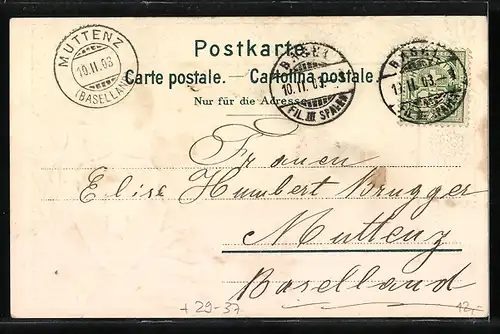 Postkarte.
Carte postale. — Cartolina postale.
Nur für die Adresse.
MUTTENZ
10.II.03
(BASELLAND)
BASEL
10.II.03
FIL. III SPALEN
BASEL
10.II.03
FIL. III SPALEN
Frauen
Elise Humbert Brugger
Muttenz
Baselland
+29-37
12,-